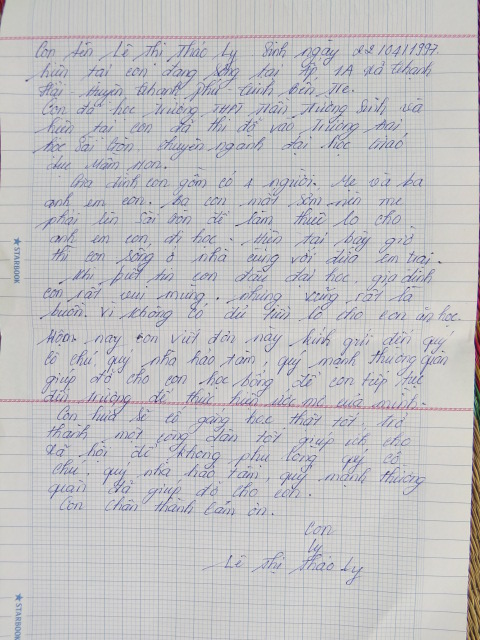 Con tên Lê Thị Thảo Ly Sinh ngày 22/04/1997
hiện tại con đang sống tại ấp 1A xã Thanh
Hải - Huyện Thanh Phú Tỉnh Bến Tre.
Con đã học Trường THPT Trần Trường Sinh và
hiện tại con đã thi đỗ vào Trường Đại
học Sài Gòn, chuyên ngành đại học Giáo
dục Mầm Non.
Gia đình con gồm có 4 người. Mẹ và ba
anh em con. Ba con mất sớm nên mẹ
phải lên Sài Gòn để làm thuê lo cho
anh em con đi học. Hiện tại bây giờ
thì con sống ở nhà cùng với đứa em trai.
Khi biết tin con đậu đại học, gia đình
con rất vui mừng, nhưng cũng rất là
buồn. Vì không có đủ tiền lo cho con ăn học
Hôm nay con viết đơn này kính gửi đến quý
cô chú, quý nhà hảo tâm, quý mạnh thường quân
giúp đỡ cho con học bổng để con tiếp tục
đến trường để thực hiện ước mơ của mình.
Con hứa sẽ cố gắng học thật tốt, trở
thành một công dân tốt giúp ích cho
xã hội để không phụ lòng quý cô
chú, quý nhà hảo tâm, quý mạnh thường
quân đã giúp đỡ cho con.
Con chân thành cảm ơn.
Con
Ly
Lê Thị Thảo Ly
STARBOOK
STARBOOK